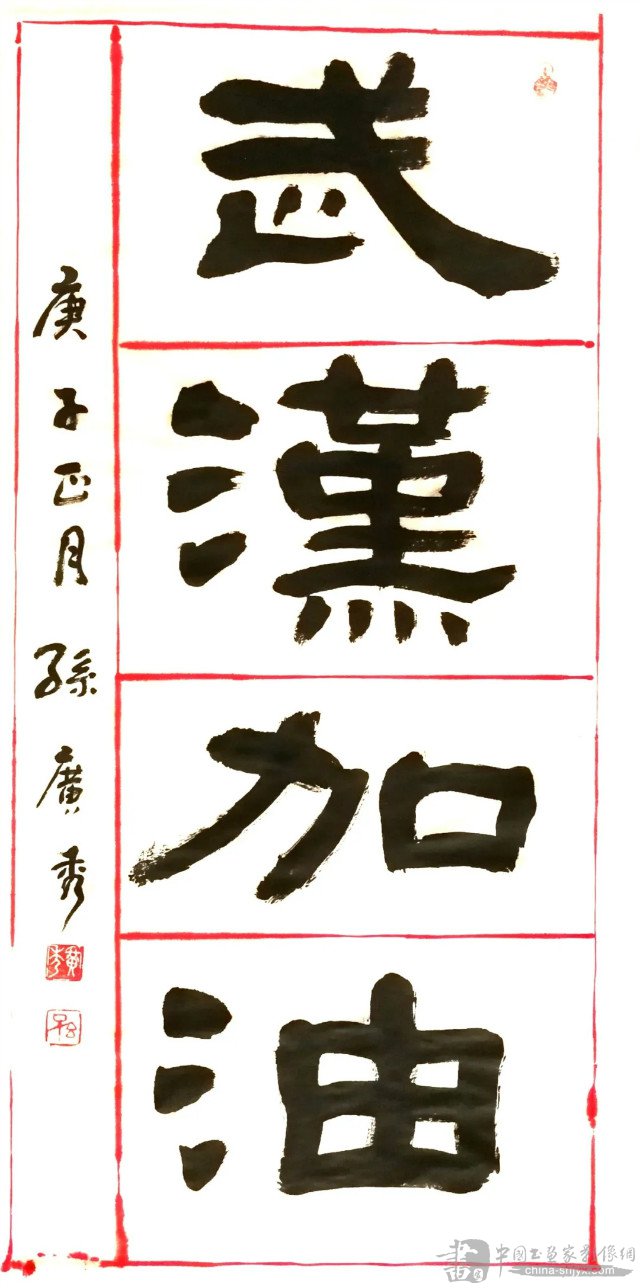 武漢加油
庚子正月孫廣秀
中国书画家影像網
china-shjyx.com